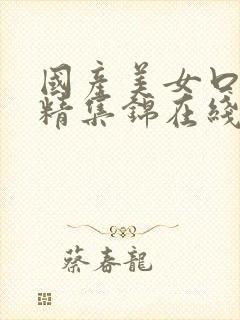 國產美女口
精集錦在綫
蔡春龍